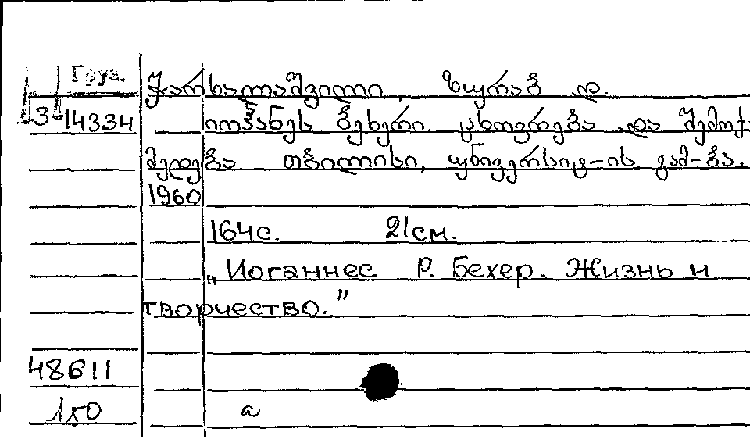 Груз.
კარსალაშვილი, ზურაბ დ.
3-14334 იოჰანეს ბეხერი. ცხოვრება და შემოქ
მედება თბილისი, უნივერსიტ-ის გამ-ბა.
1960
164с. 21см.
„Иоганнес Р. Бехер. Жизнь и
творчество."
48611
150 а